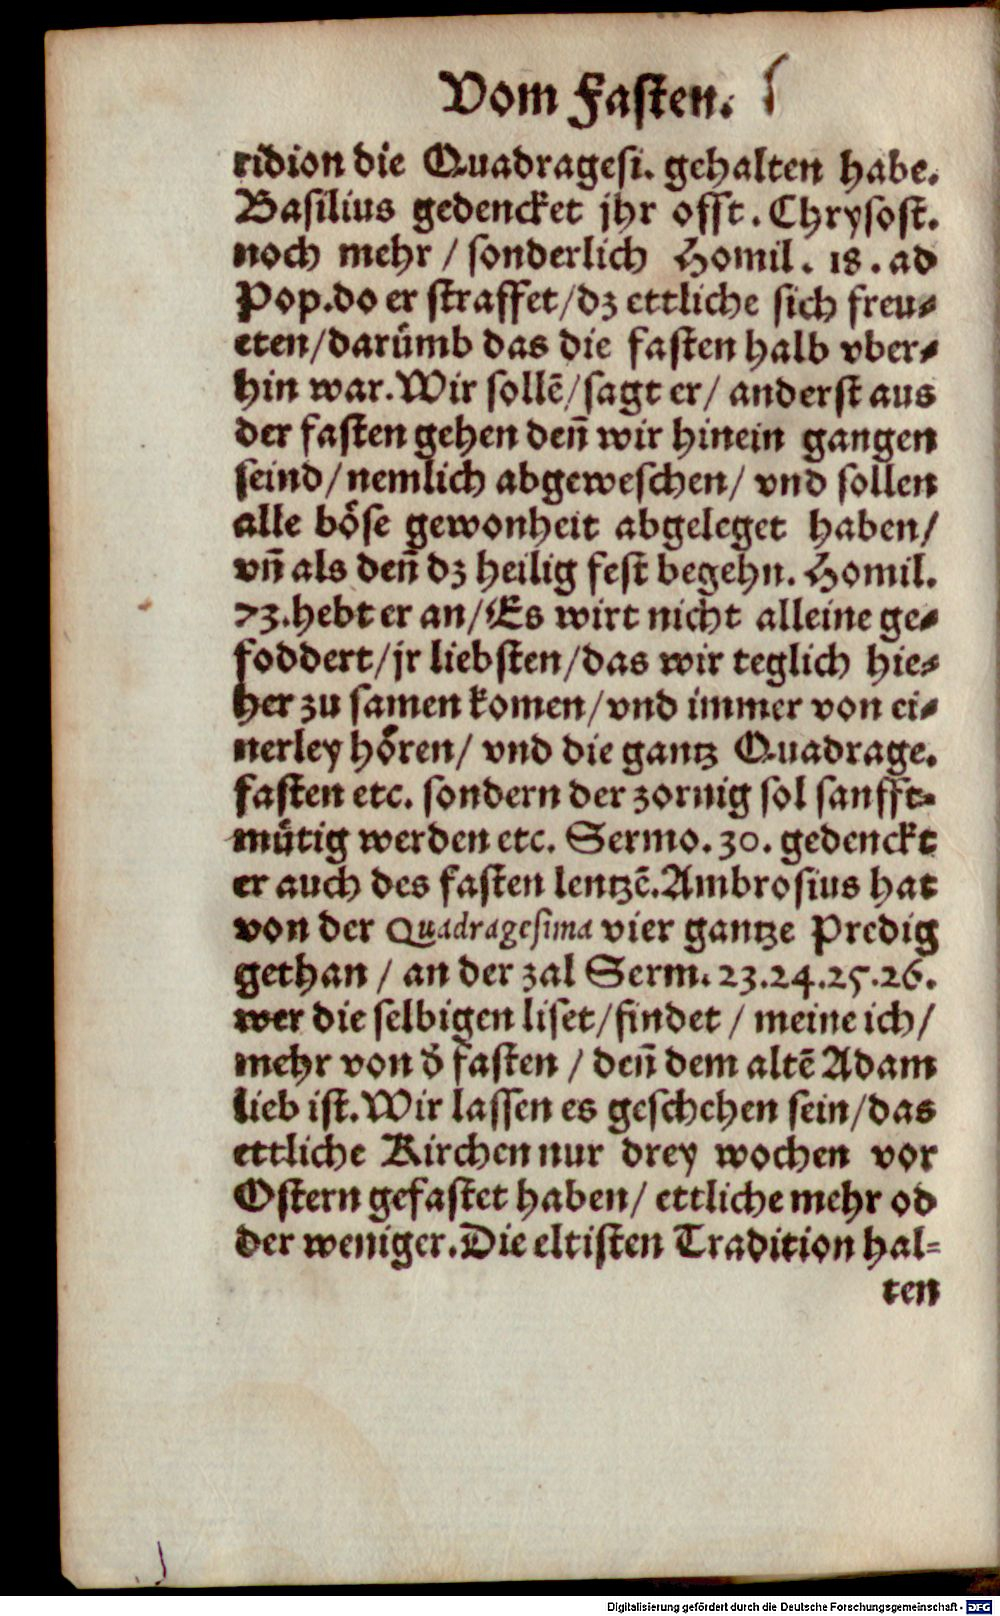 Vom Fasten.
ridion die Quadragesi. gehalten habe.
Basilius gedencket jhr offt. Chrysost.
noch mehr / sonderlich Homil. 18. ad
Pop. do er straffet / dz ettliche sich freu⸗
eten / darümb das die fasten halb vber⸗
hin war. Wir sollē / sagt er / anderst aus
der fasten gehen deñ wir hinein gangen
seind / nemlich abgeweschen / vnd sollen
alle böse gewonheit abgeleget haben /
vñ als deñ dz heilig fest begehn. Homil.
73. hebt er an / Es wirt nicht alleine ge⸗
foddert / jr liebsten / das wir teglich hie⸗
her zu samen komen / vnd immer von ei⸗
nerley hören / vnd die gantz Quadrage.
fasten etc. sondern der zornig sol sanfft⸗
mütig werden etc. Sermo. 30. gedenckt
er auch des fasten lentzē. Ambrosius hat
von der Quadragesima vier gantze Predig
gethan / an der zal Serm. 23. 24. 25. 26.
wer die selbigen liset / findet / meine ich /
mehr von d̕ fasten / deñ dem altē Adam
lieb ist. Wir lassen es geschehen sein / das
ettliche Kirchen nur drey wochen vor
Ostern gefastet haben / ettliche mehr od
der weniger. Die eltisten Tradition hal⸗
ten
Digitalisierung gefördert durch die Deutsche Forschungsgemeinschaft - DFG